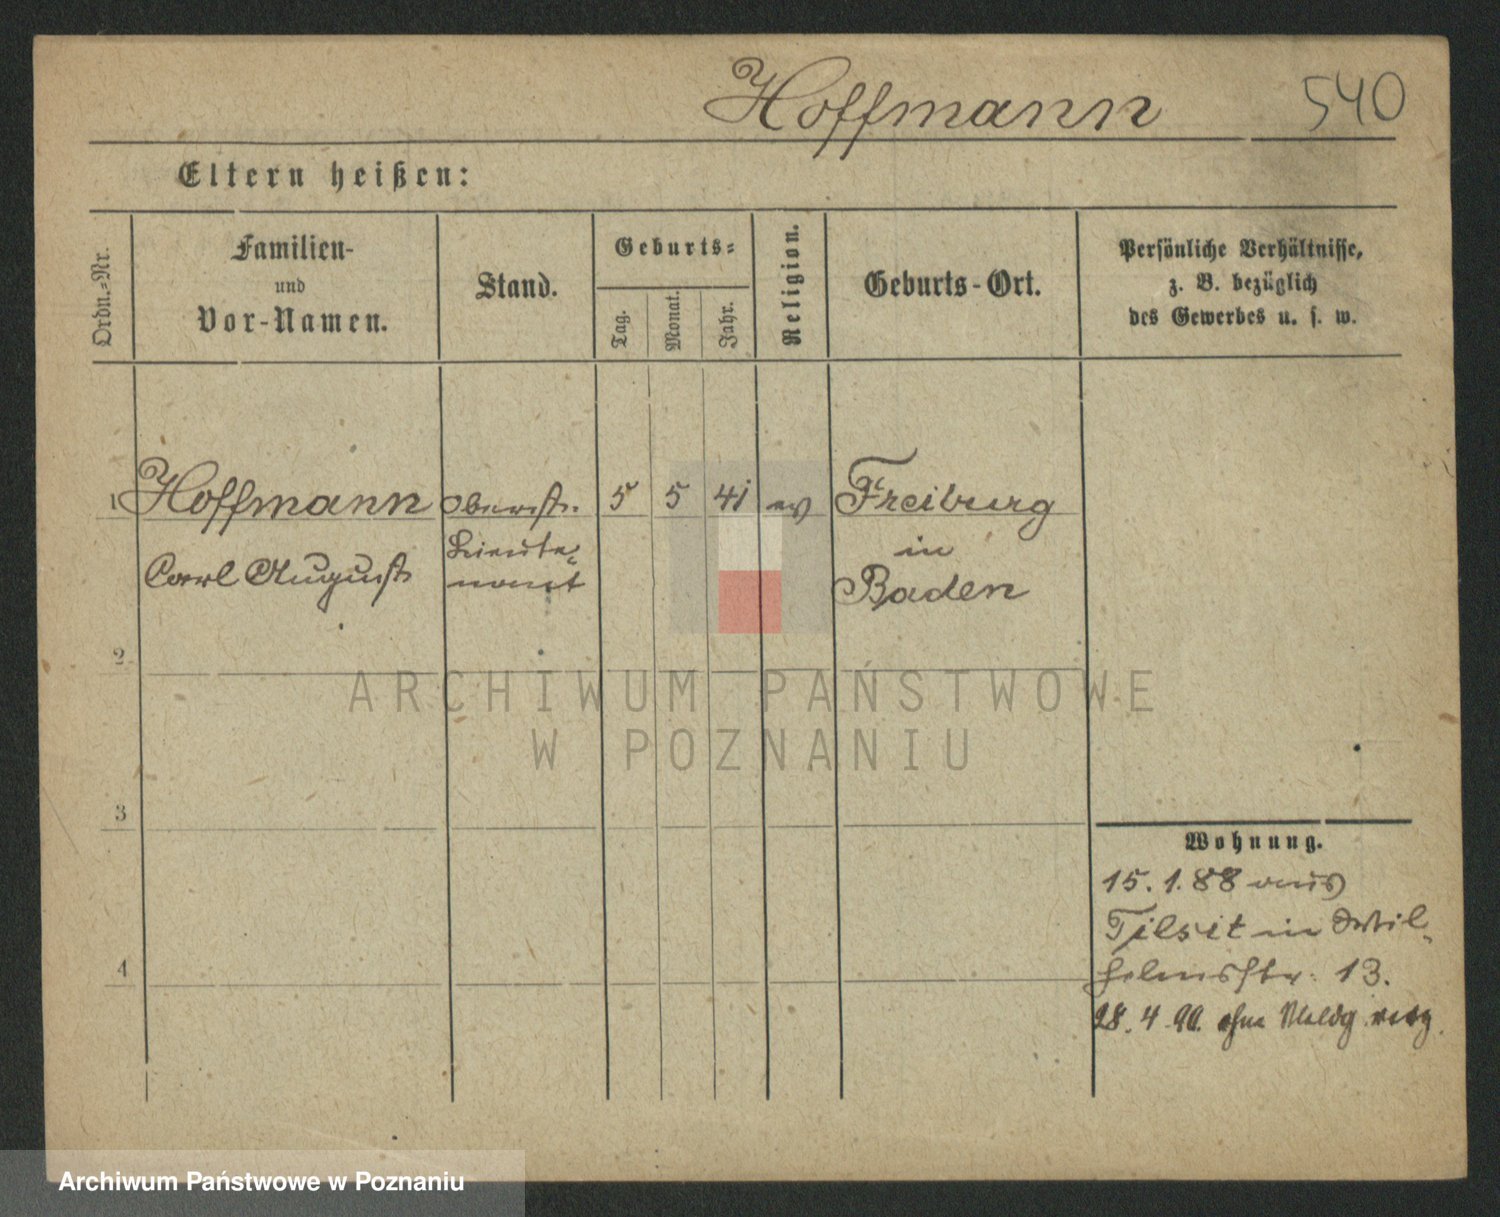 Hoffmann 540
Eltern heißen:
Ordn.-Nr.
Familien-
und
Vor-Namen.
Stand.
Geburts-
Tag.
Monat.
Jahr.
Religion.
Geburts-Ort.
Persönliche Verhältnisse,
z. B. bezüglich
des Gewerbes u. s. w.
1 Hoffmann Oberst- 5 5 41 ev Freiburg
Carl August Lieute- in
nant Baden
2
ARCHIWUM PAŃSTWOWE
W POZNANIU
3
Wohnung.
15. 1. 88 aus
Tilsit in Wil-
helmstr. 13.
4
28. 4. 90. ohne Meldg
Archiwum Państwowe w Poznaniu